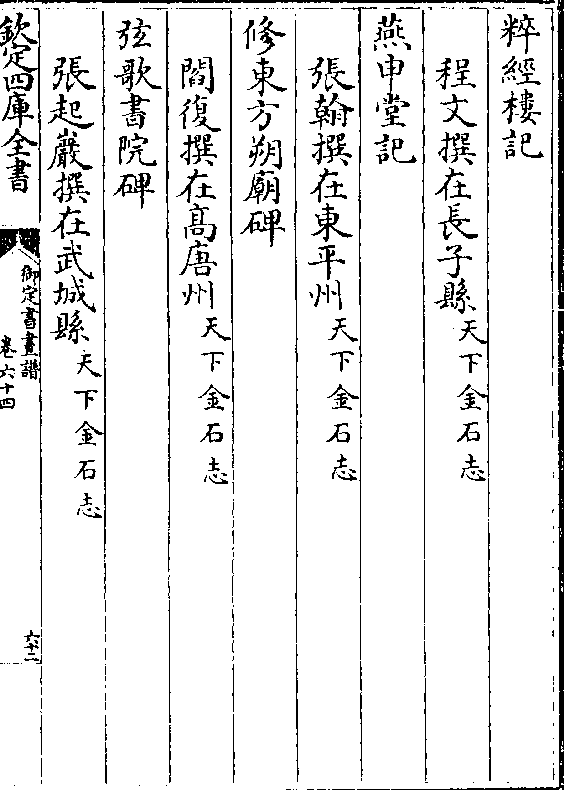 粹經樓記
程文撰在長子縣天下金石志
燕申堂記
張翰撰在東平州天下金石志
修東方朔廟碑
閻復撰在高唐州天下金石志
弦歌書院碑
張起巖撰在武城縣天下金石志
欽定四庫全書
御定書畫譜
卷六十四
六十二